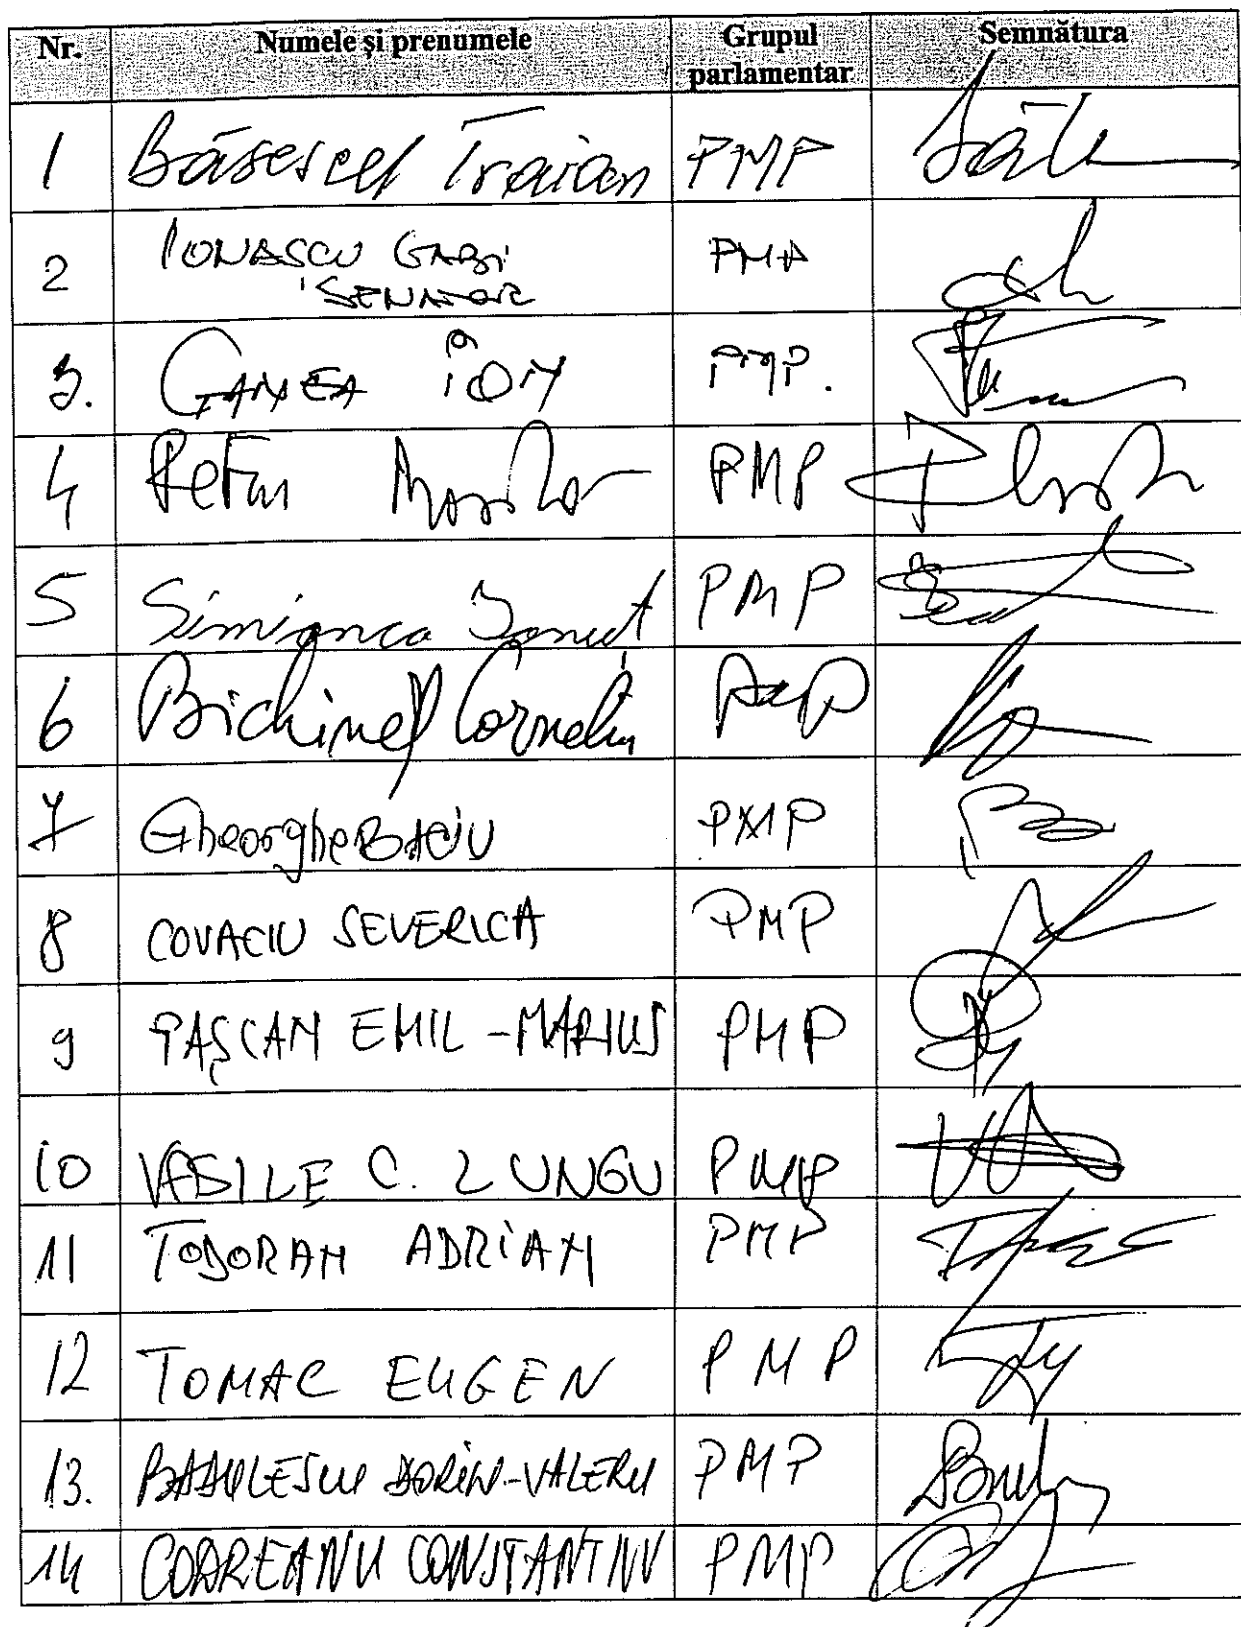 Nr. Numele și prenumele Grupul parlamentar Semnătura
1 Băsescu Traian PMP
2 IONAȘCU GABI PMP
SENATOR
3. GANEA ION PMP.
4 Petru Movila PMP
5 Simionca Ionuț PMP
6 Bichineț Corneliu PMP
7 Gheorghe BACIU PMP
8 COVACIU SEVERICA PMP
9 PAȘCAN EMIL-MARIUS PMP
10 VASILE C. LUNGU PMP
11 TODORAN ADRIAN PMP
12 TOMAC EUGEN PMP
13. BĂDULESCU DORIN-VALERIU PMP
14 CODREANU CONSTANTIN PMP